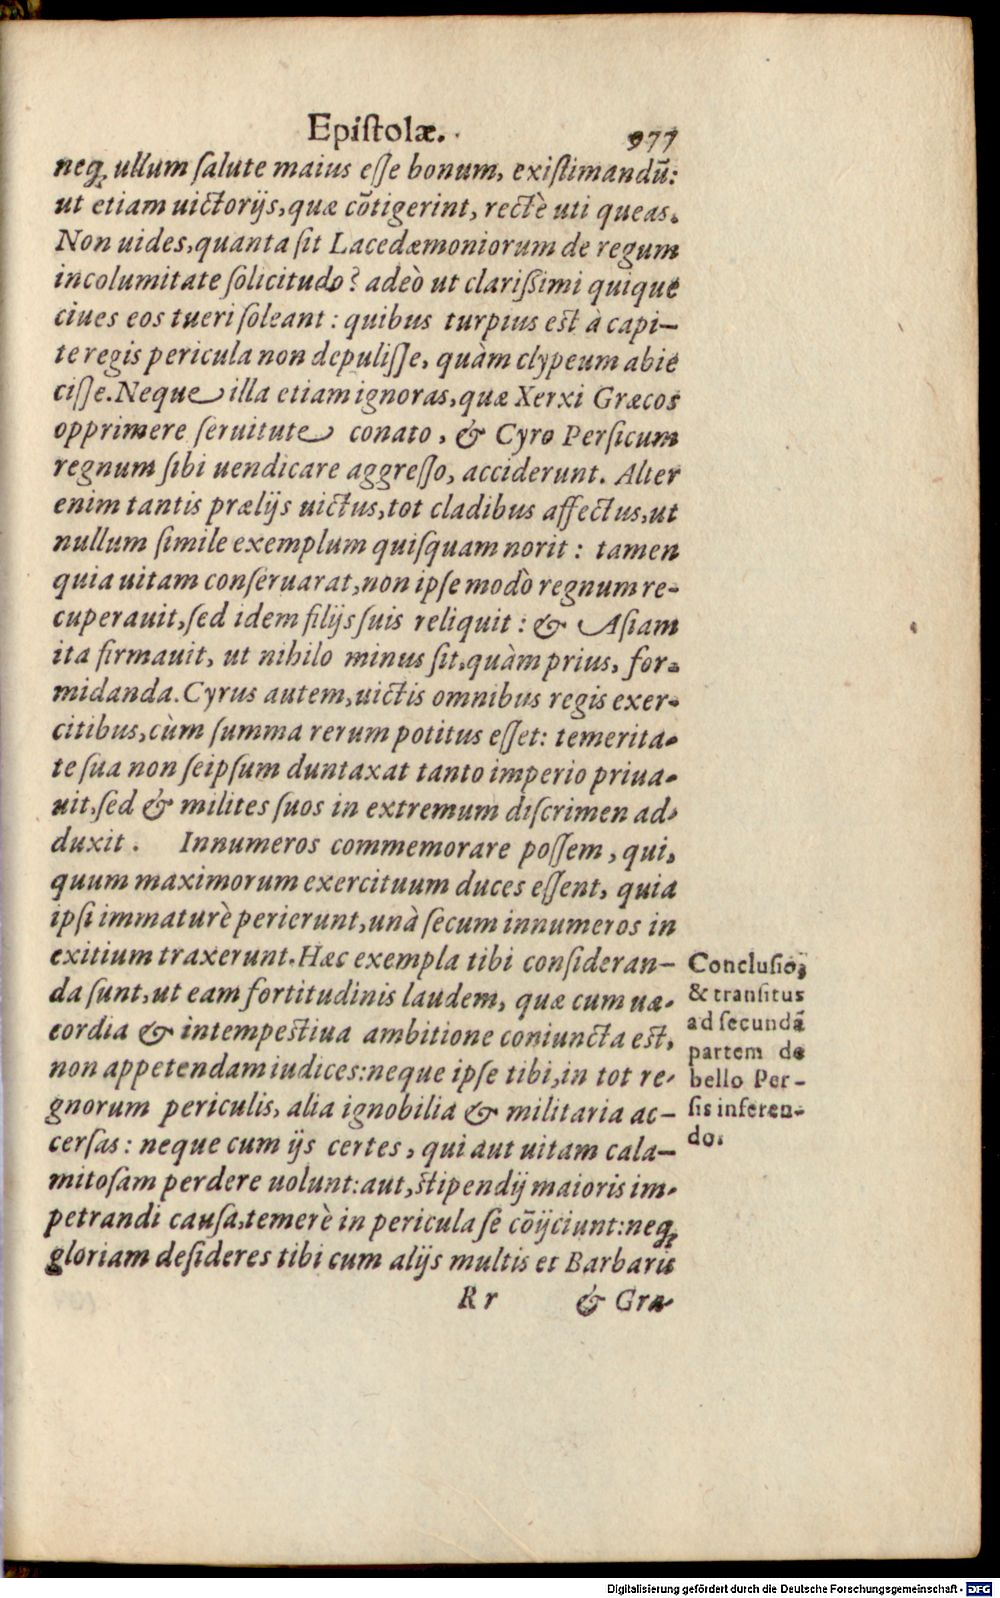 Epiſtolæ. 977
neq́; ullum ſalute maius eſſe bonum, exiſtimandũ:
ut etiam uictorijs, quæ cõtigerint, rectè uti queas.
Non uides, quanta ſit Lacedæmoniorum de regum
incolumitate ſolicitudo? adeò ut clariſſimi quique
ciues eos tueri ſoleant: quibus turpius eſt à capi-
te regis pericula non depuliſſe, quàm clypeum abie
ciſſe. Neque illa etiam ignoras, quæ Xerxi Græcos
opprimere ſeruitute conato, & Cyro Perſicum
regnum ſibi uendicare aggreſſo, acciderunt. Alter
enim tantis prælijs uictus, tot cladibus affectus, ut
nullum ſimile exemplum quiſquam norit: tamen
quia uitam conſeruarat, non ipſe modò regnum re-
cuperauit, ſed idem filijs ſuis reliquit: & Aſiam
ita firmauit, ut nihilo minus ſit, quàm prius, for-
midanda. Cyrus autem, uictis omnibus regis exer-
citibus, cùm ſumma rerum potitus eſſet: temerita-
te ſua non ſeipſum duntaxat tanto imperio priua-
uit, ſed & milites ſuos in extremum diſcrimen ad-
duxit. Innumeros commemorare poſſem, qui,
quum maximorum exercituum duces eſſent, quia
ipſi immaturè perierunt, unà ſecum innumeros in
exitium traxerunt. Hæc exempla tibi conſideran-
da ſunt, ut eam fortitudinis laudem, quæ cum uæ-
cordia & intempeſtiua ambitione coniuncta eſt,
non appetendam iudices: neque ipſe tibi, in tot re-
gnorum periculis, alia ignobilia & militaria ac-
cerſas: neque cum ijs certes, qui aut uitam cala-
mitoſam perdere uolunt: aut, ſtipendij maioris im-
petrandi cauſa, temerè in pericula ſe cõijciunt: neq́;
gloriam deſideres tibi cum alijs multis et Barbaris
Rr & Græ-
Concluſio,
& tranſitus
ad ſecundã
partem de
bello Per-
ſis inferen-
do.
Digitalisierung gefördert durch die Deutsche Forschungsgemeinschaft - DFG